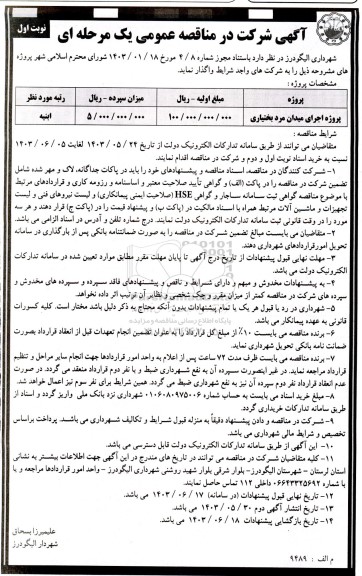 نوبت اول
آگهی شرکت در مناقصه عمومی یک مرحله ای
شهرداری الیگودرز در نظر دارد باستناد مجوز شماره ۴/۸ مورخ ۱۴۰۳/۰۱/۱۸ شورای محترم اسلامی شهر پروژه
های مشروحه ذیل را به شرکت های واجد شرایط واگذار نماید.
مشخصات پروژه :
پروژه مبلغ اولیه - ریال میزان سپرده - ریال رتبه مورد نظر
پروژه اجرای میدان مرد بختیاری ۱۰۰/۰۰۰/۰۰۰/۰۰۰ ۵/۰۰۰/۰۰۰/۰۰۰ ابنیه
شرایط مناقصه :
متقاضیان می توانند از طریق سامانه تدارکات الکترونیک دولت از تاریخ ۱۴۰۳/۰۵/۲۴ لغایت ۱۴۰۳/۰۶/۰۵
نسبت به خرید اسناد نوبت اول و دوم و شرکت در مناقصه اقدام نمایند.
۱- شرکت کنندگان در مناقصه، اسناد مناقصه و پیشنهادهای خود را باید در پاکات جداگانه، لاک و مهر شده شامل
تضمین شرکت در مناقصه را در پاکت (الف) و گواهی تأیید صلاحیت معتبر و اساسنامه و رزومه کاری و قراردادهای مرتبط
با موضوع مناقصه گواهی ثبت سامانه ساجار و گواهی HSE (صلاحیت ایمنی پیمانکاری) و لیست نیروهای فنی و لیست
تجهیزات و ماشین آلات مرتبط همراه با اسناد مالکیت در (پاکت ب) و پیشنهاد قیمت را در (پاکت ج) قرار دهند و هر سه
مورد را در وقت قانونی ثبت سامانه تدارکات الکترونیک دولت نمایند. درج شماره تلفن و آدرس در اسناد الزامی می باشد.
۲- متقاضیان می بایست مبالغ تضمین شرکت در مناقصه را به صورت ضمانتنامه بانکی پس از بارگذاری در سامانه
تحویل امورقراردادهای شهرداری دهند.
۳- مهلت نهایی قبول پیشنهادات از تاریخ درج آگهی تا پایان مهلت مقرر مطابق موارد تعیین شده در سامانه تدارکات
الکترونیک دولت می باشد.
۴- به پیشنهادات مخدوش و مبهم و دارای شرایط و ناقص و پیشنهادهای فاقد سپرده و سپرده های مخدوش و
سپرده های شرکت در مناقصه کمتر از میزان مقرر وچک شخصی و نظایر آن ترتیب اثر داده نخواهد.
۵- شهرداری در رد یا قبول هر یک یا تمام پیشنهادات بدون آنکه محتاج به ذکر دلیل باشد مختار است. کلیه کسورات
قانونی به عهده پیمانکار می باشد.
۶- برنده مناقصه می بایست ۱۰٪ از مبلغ کل قرارداد را به عنوان تضمین انجام تعهدات قبل از انعقاد قرارداد بصورت
ضمانت نامه بانکی تحویل نماید.
۷- برنده مناقصه می بایست ظرف مدت ۷۲ ساعت پس از اعلام به واحد امور قراردادها جهت انجام سایر مراحل و تنظیم
قرارداد مراجعه نماید. در غیر اینصورت سپرده آن به نفع شهرداری ضبط و با نفر دوم قرارداد منعقد می گردد. در صورت
عدم انعقاد قرارداد نفر دوم سپرده آن نیز به نفع شهرداری ضبط می گردد. همین شرایط برای نفر سوم نیز اعمال خواهد شد.
۸- مبلغ خرید اسناد می بایست به حساب شماره ۰۱۰۶۰۸۰۹۷۵۰۰۶ شهرداری نزد بانک ملی واریز گردد و اسناد از
طریق سامانه تدارکات خریداری گردد.
۹- شرکت در مناقصه و دادن پیشنهاد دقیقاً به منزله قبول شرایط و تکالیف شهرداری می باشد. پرداخت براساس
تخصیص و شرایط مالی شهرداری می باشد.
۱۰- این آگهی از طریق سامانه تدارکات الکترونیک دولت قابل دسترسی می باشد.
۱۱- کلیه متقاضیان شرکت در مناقصه می توانند در تاریخ های مندرج در این آگهی جهت اطلاعات بیشتر به نشانی
استان لرستان - شهرستان الیگودرز - بلوار شرقی بلوار شهید روشنی شهرداری الیگودرز - واحد امور قراردادها مراجعه و یا
با شماره ۰۶۶۴۳۳۲۵۶۹۲ داخلی ۱۱۲ تماس حاصل نمایند.
۱۲- تاریخ نهایی قبول پیشنهادات (در سامانه) ۱۴۰۳/۰۶/۱۷ می باشد.
۱۳- تاریخ انتشار آگهی دوم ۱۴۰۳/۰۵/۳۰ می باشد.
۱۴- تاریخ بازگشایی پیشنهادات ۱۴۰۳/۰۶/۱۸ می باشد.
علیمیرزا بسحاق
شهردار الیگودرز
م الف : ۹۴۸۹